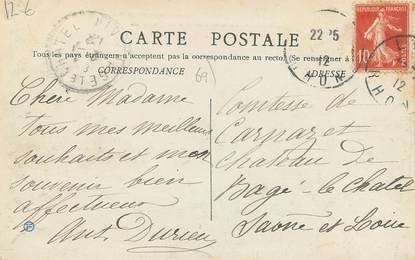 12-6
CARTE POSTALE
Tous les pays étrangers n'acceptent pas la correspondance au recto. (Se renseigner à
CORRESPONDANCE
ADRESSE
69
RÉPUBLIQUE FRANÇAISE
10
22 25
12
RHO
12
Chère Madame
Tous mes meilleurs
souhaits et mon
souvenir bien
affectueux
Ant. Durieu
Comtesse de
et
Chateau de
Bagé-le-Chatel
Saone et Loire